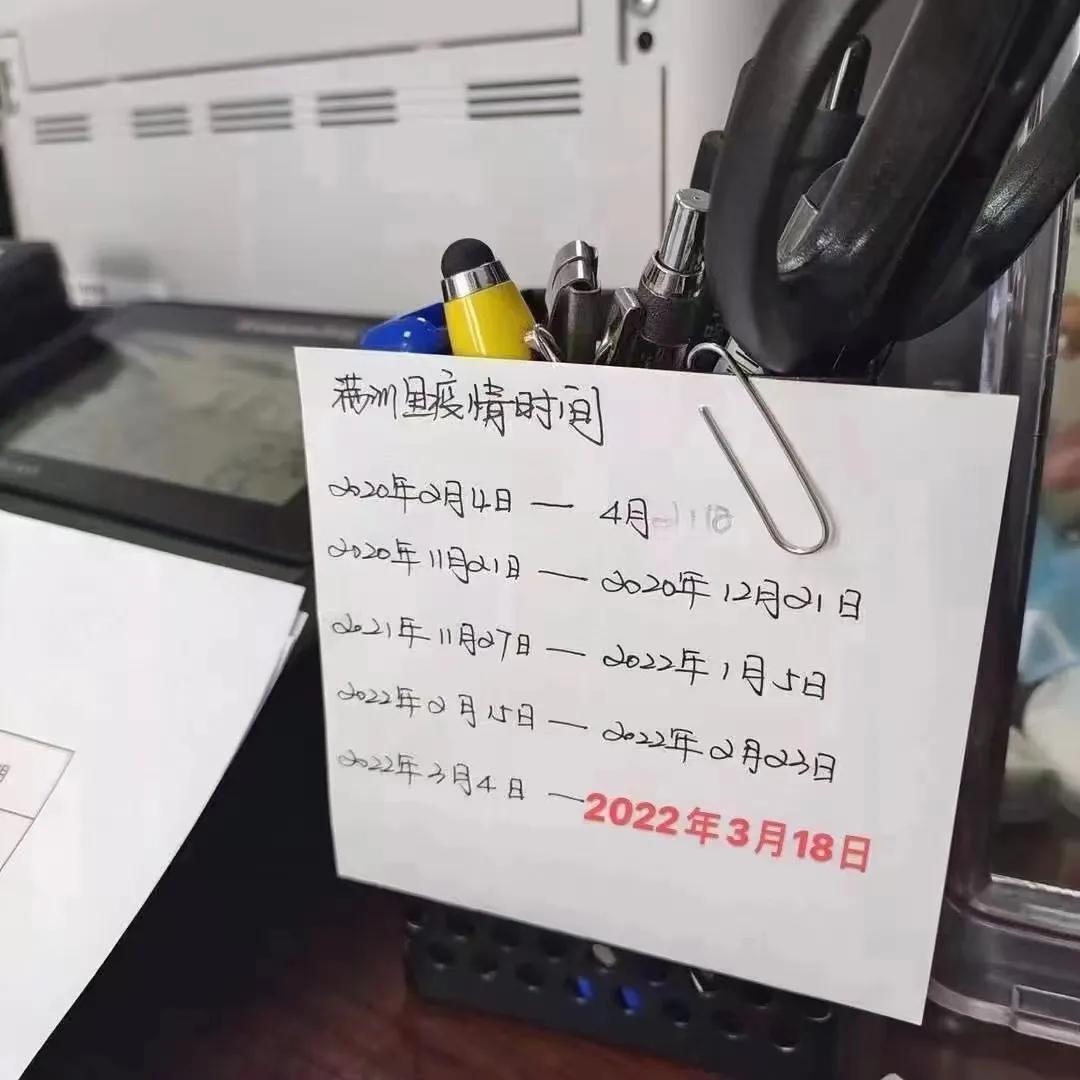 满洲里疫情时间
2020年2月4日 — 4月
2020年11月21日 — 2020年12月21日
2021年11月27日 — 2022年1月5日
2022年2月15日 — 2022年2月23日
2022年3月4日 — 2022年3月18日